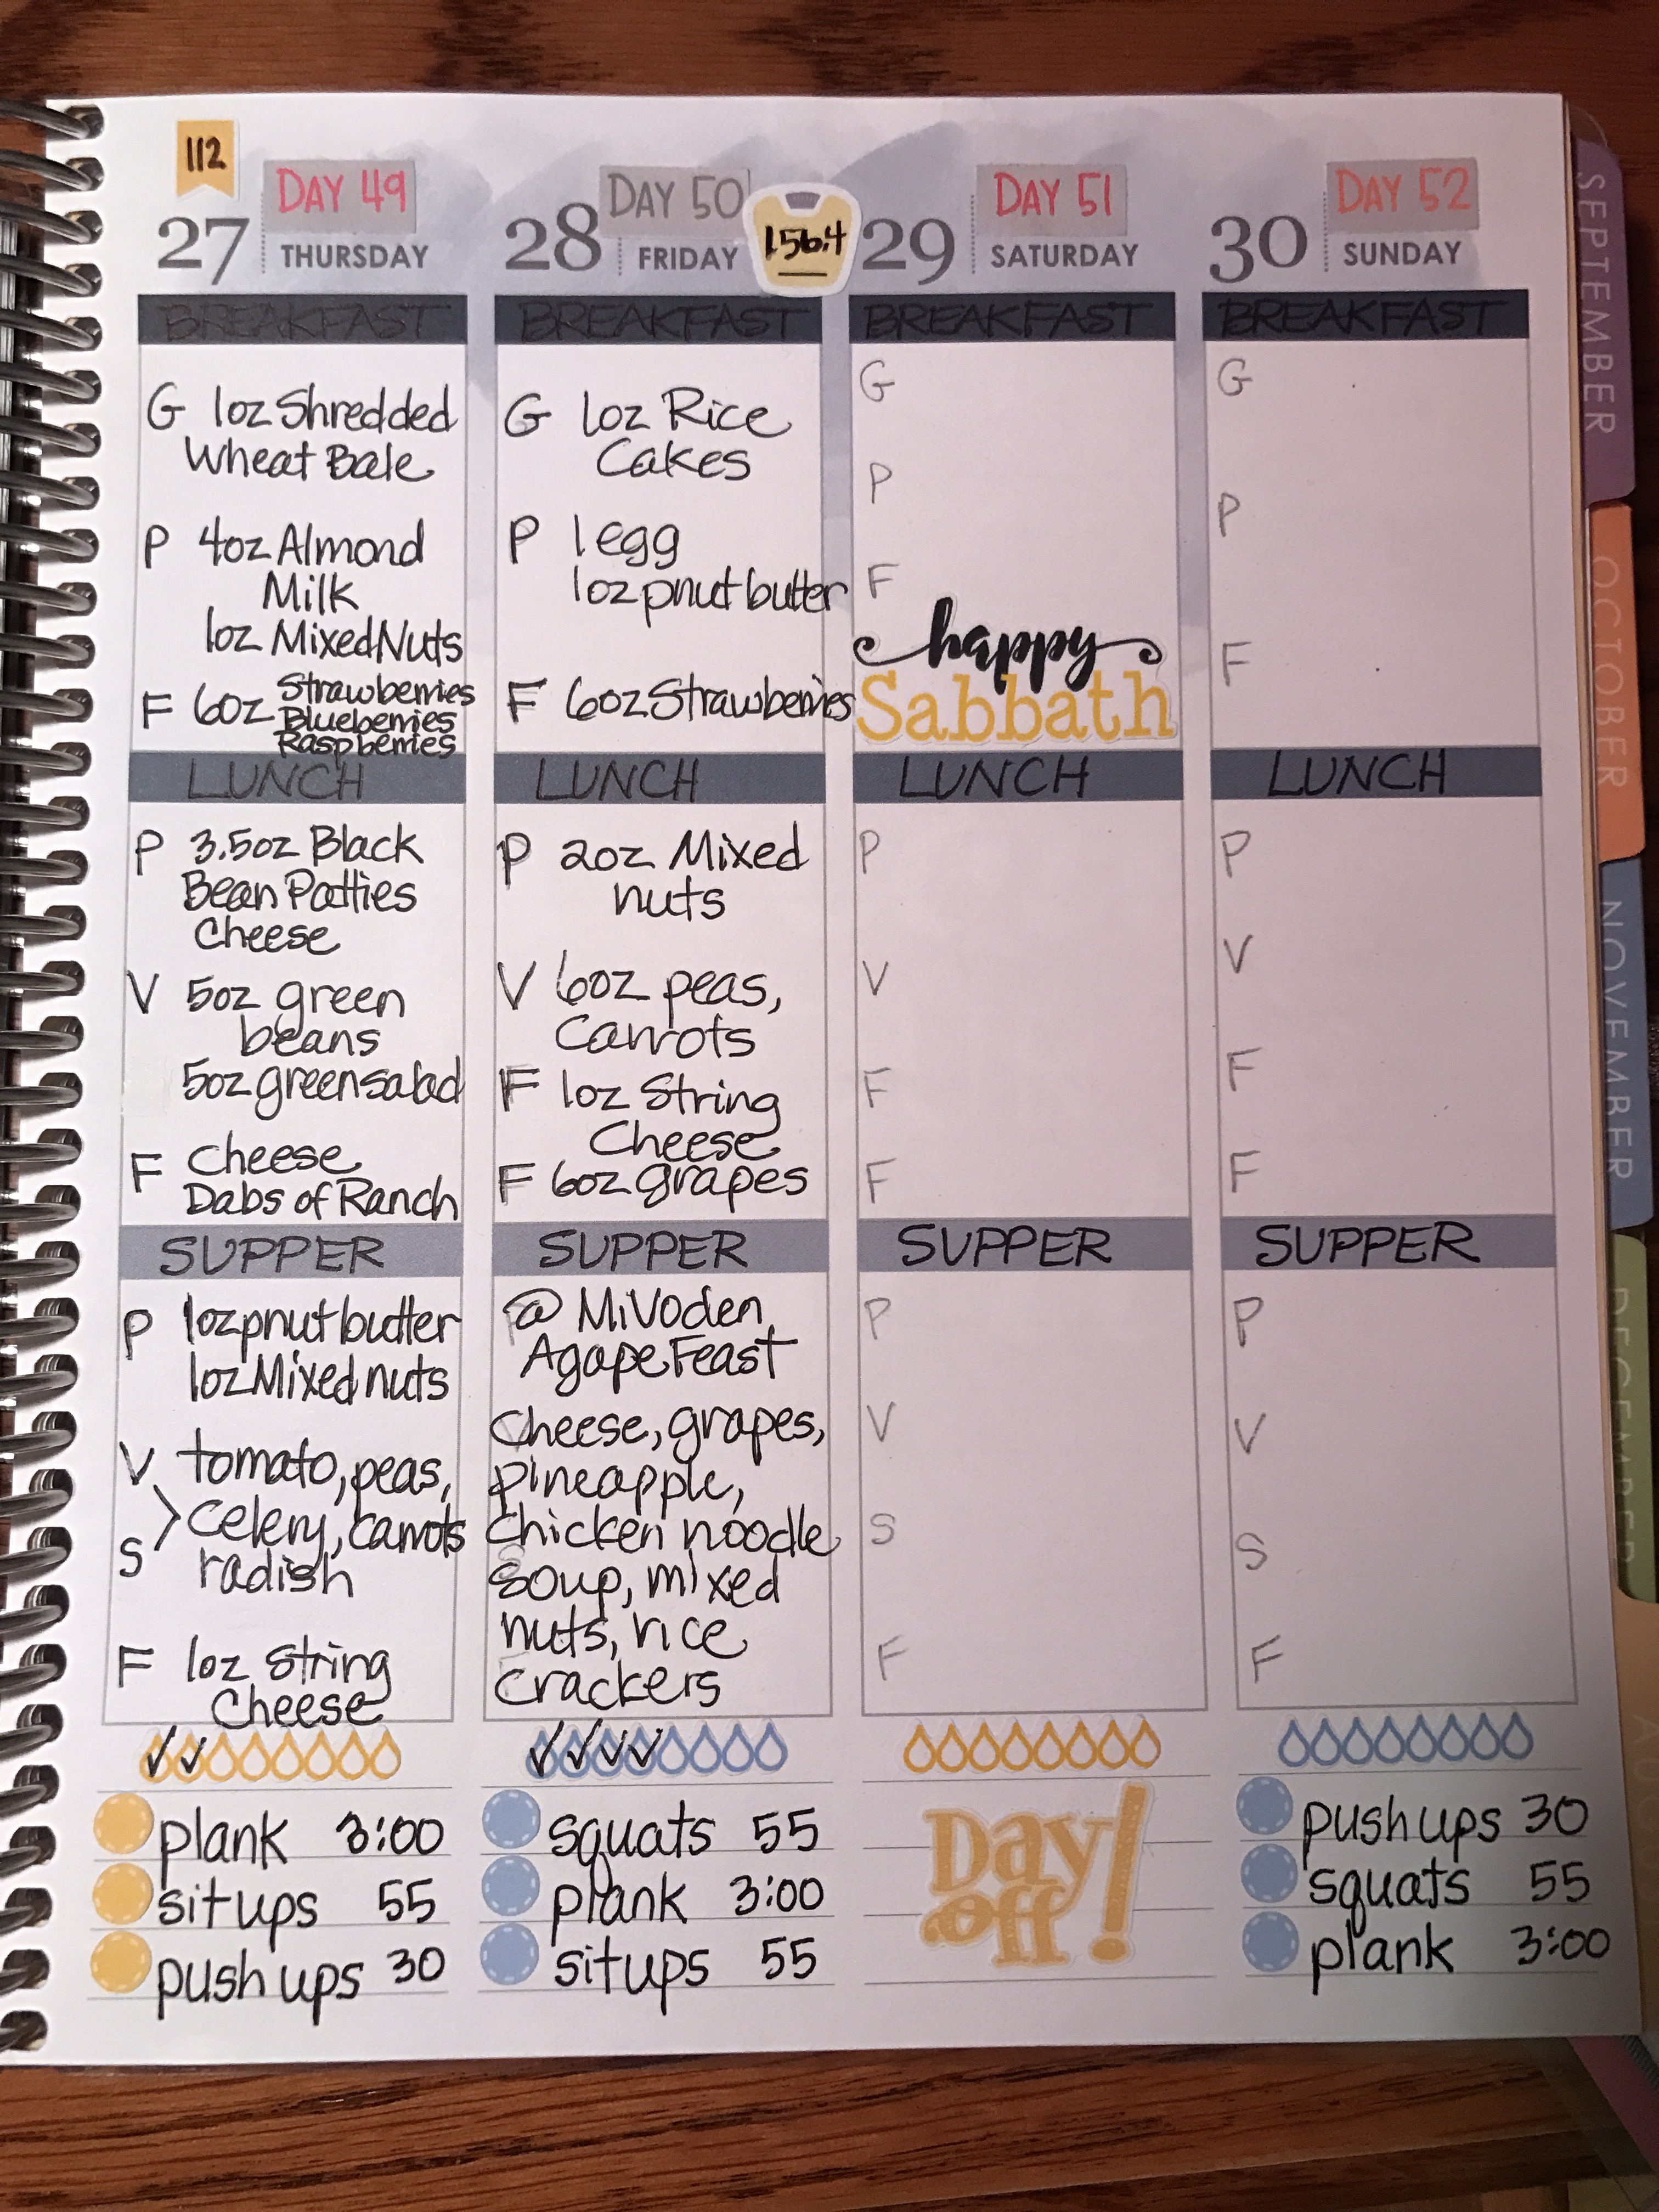 112
DAY 49
27
THURSDAY
BREAKFAST
G 1oz Shredded
Wheat Bale
P 4oz Almond
Milk
1oz Mixed Nuts
F 6oz Strawberries
Blueberries
Raspberries
LUNCH
P 3.5oz Black
Bean Patties
Cheese
V 5oz green
beans
5oz green salad
F Cheese
Dabs of Ranch
SUPPER
P 1oz pnut butter
1oz Mixed nuts
V tomato, peas,
S celery, carrots
radish
F 1oz String
Cheese
plank 3:00
situps 55
push ups 30
DAY 50
28
FRIDAY
156.4
BREAKFAST
G 1oz Rice
Cakes
P 1 egg
1oz pnut butter
F 6oz Strawberries
LUNCH
P 2oz Mixed
nuts
V 6oz peas,
Carrots
F 1oz String
Cheese
F 6oz grapes
SUPPER
@ MiVoden
Agape Feast
Cheese, grapes,
pineapple,
chicken noodle
soup, mixed
nuts, rice
crackers
squats 55
plank 3:00
situps 55
DAY 51
29
SATURDAY
BREAKFAST
G
P
F
happy
Sabbath
LUNCH
P
V
F
F
SUPPER
P
V
S
F
Day
off!
DAY 52
30
SUNDAY
BREAKFAST
G
P
F
LUNCH
P
V
F
F
SUPPER
P
V
S
F
push ups 30
squats 55
plank 3:00
SEPTEMBER
OCTOBER
NOVEMBER
DECEMBER